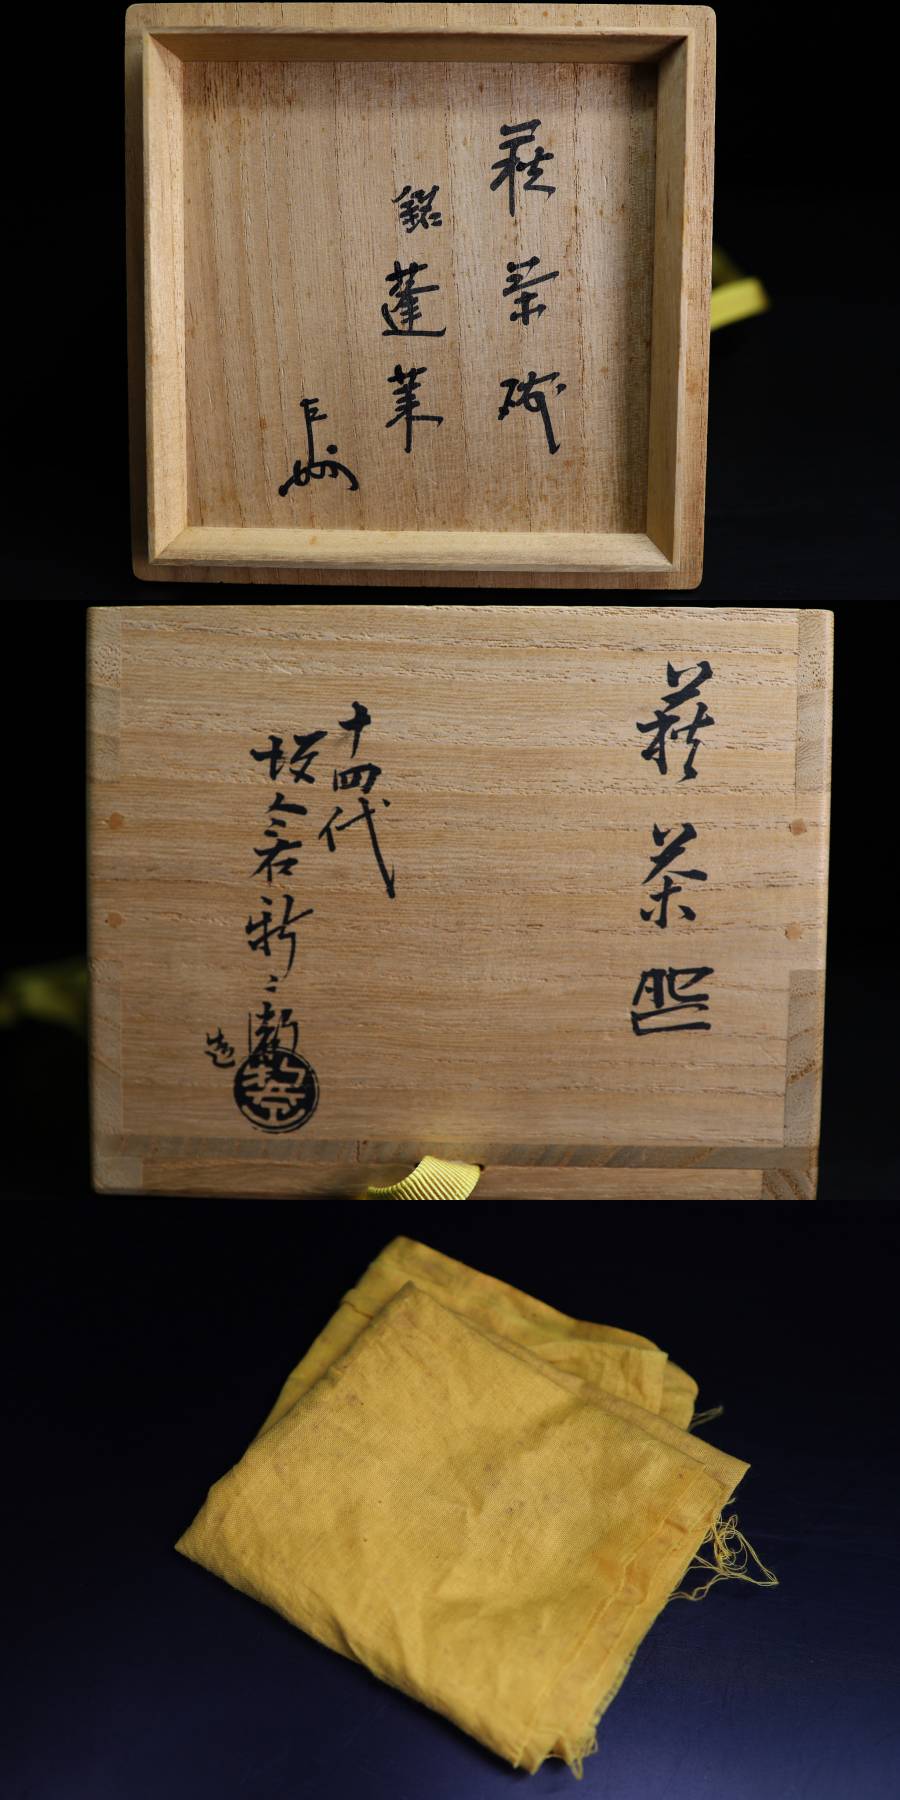 萩茶碗
銘 蓬莱
萩茶盌
十四代
坂倉新兵衛
造